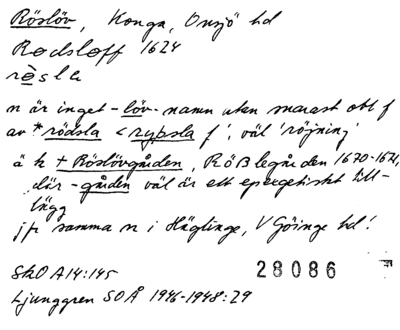 Röslöv, Konga, Onsjö hd
Rødsløff 1624
rèsla
n är inget -löv- namn utan snarast obl f
av *rödsla < ryþsla f', väl 'röjning'
ä h + Röslövgården, Rößlegården 1670-1671,
där -gården väl är ett epexegetiskt till-
lägg
jfr samma n i Häglinge, V Göinge hd!
SkO A14:145
28086
Ljunggren SOÅ 1946-1948:29